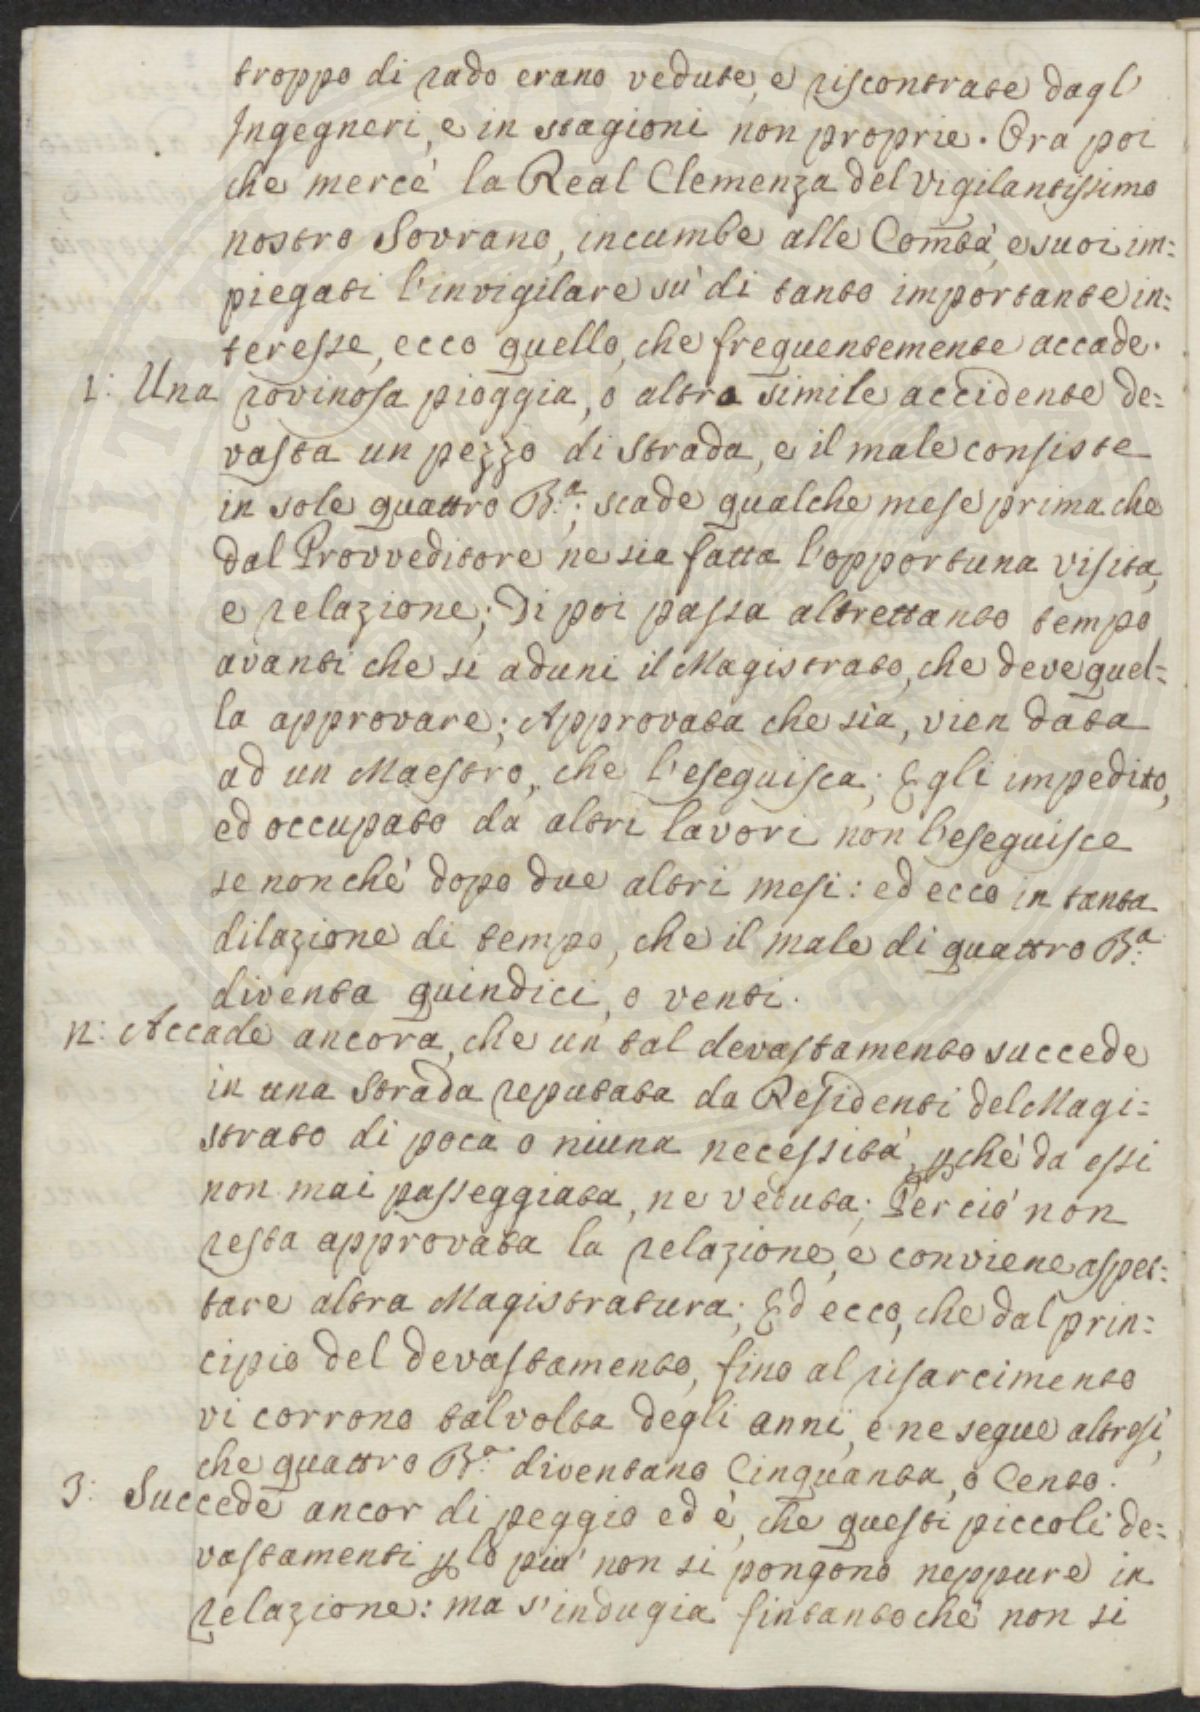 troppo di rado erano vedute, e riscontrate dagl'
Ingegneri, e in stagioni non proprie. Ora poi
che mercè la Real Clemenza del vigilantissimo
nostro Sovrano, incumbe alle Comtà, e suoi im=
piegati l'invigilare sù di tanto importante in=
teresse, ecco quello, che frequentemente accade.
1: Una rovinosa pioggia, o altro simile accidente de=
vasta un pezzo di strada, e il male consiste
in sole quattro B.ª; scade qualche mese prima che
dal Provveditore ne sia fatta l'opportuna visita,
e relazione; Di poi passa altrettanto tempo
avanti che si aduni il Magistrato, che deve quel=
la approvare; Approvata che sia, vien data
ad un Maestro, che l'eseguisca; Egli impedito,
ed occupato da altri lavori non l'eseguisce
se non chè dopo due altri mesi: ed ecco in tanta
dilazione di tempo, che il male di quattro B.ª
diventa quindici, o venti.
2: Accade ancora, che un tal devastamento succede
in una Strada reputata da Residenti del Magi=
strato di poca o niuna necessità, pchè da essi
non mai passeggiata, ne veduta; Perciò non
resta approvata la relazione, e conviene aspet=
tare altra Magistratura; Ed ecco, che dal prin=
cipio del devastamento, fino al risarcimento
vi corrono talvolta degli anni, e ne segue altresì,
che quattro B.ª diventano Cinquanta, o Cento.
3: Succede ancor di peggio ed è, che questi piccoli de=
vastamenti p lo più non si pongono neppure in
relazione: ma s'indugia fintantochè non si